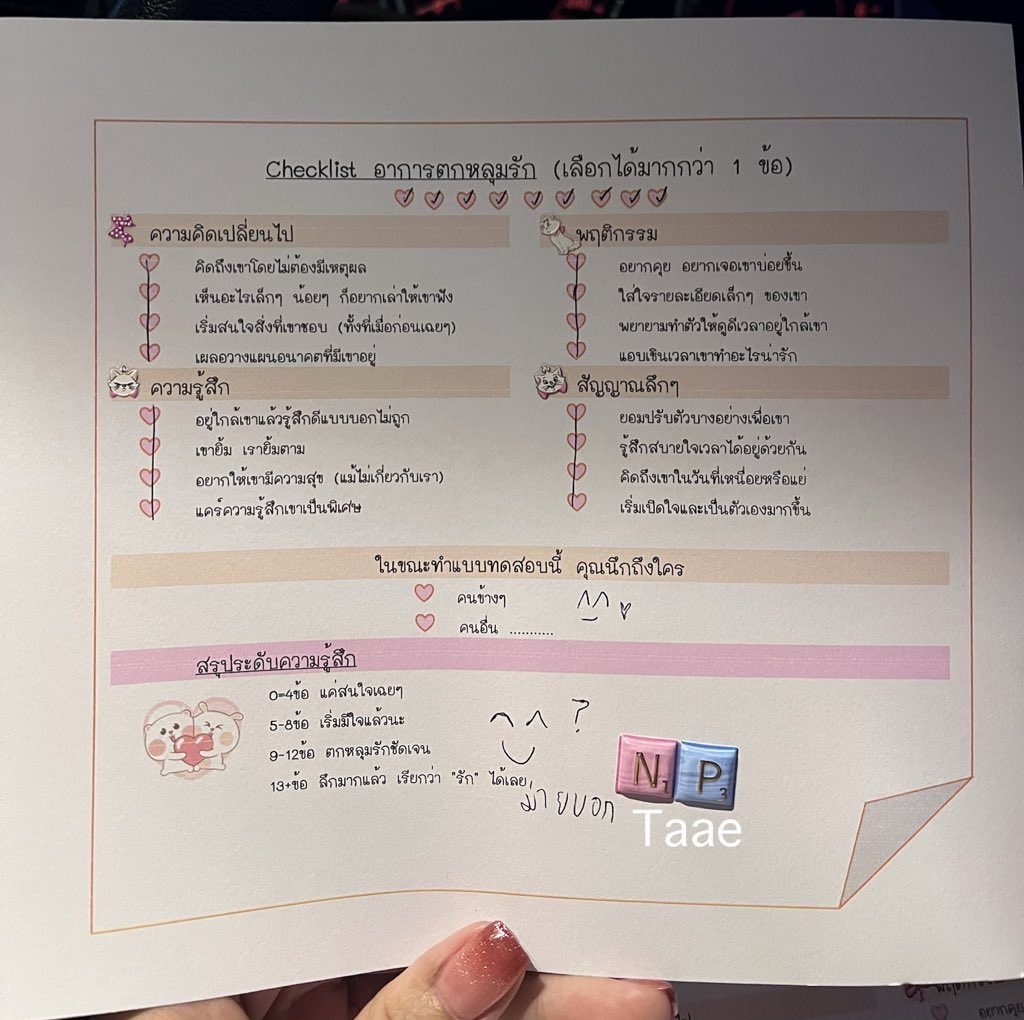 Checklist อาการตกหลุมรัก (เลือกได้มากกว่า 1 ข้อ)
ความคิดเปลี่ยนไป
คิดถึงเขาโดยไม่ต้องมีเหตุผล
เห็นอะไรเล็กๆ น้อยๆ ก็อยากเล่าให้เขาฟัง
เริ่มสนใจสิ่งที่เขาชอบ (ทั้งที่เมื่อก่อนเฉยๆ)
เผลอวางแผนอนาคตที่มีเขาอยู่
พฤติกรรม
อยากคุย อยากเจอเขาบ่อยขึ้น
ใส่ใจรายละเอียดเล็กๆ ของเขา
พยายามทำตัวให้ดูดีเวลาอยู่ใกล้เขา
แอบเขินเวลาเขาทำอะไรน่ารัก
ความรู้สึก
อยู่ใกล้เขาแล้วรู้สึกดีแบบบอกไม่ถูก
เขายิ้ม เรายิ้มตาม
อยากให้เขามีความสุข (แม้ไม่เกี่ยวกับเรา)
แคร์ความรู้สึกเขาเป็นพิเศษ
สัญญาณลึกๆ
ยอมปรับตัวบางอย่างเพื่อเขา
รู้สึกสบายใจเวลาได้อยู่ด้วยกัน
คิดถึงเขาในวันที่เหนื่อยหรือแย่
เริ่มเปิดใจและเป็นตัวเองมากขึ้น
ในขณะทำแบบทดสอบนี้ คุณนึกถึงใคร
คนข้างๆ
คนอื่น ...........
สรุประดับความรู้สึก
0=4ข้อ แค่สนใจเฉยๆ
5-8ข้อ เริ่มมีใจแล้วนะ
?
9-12ข้อ ตกหลุมรักชัดเจน
13+ข้อ ลึกมากแล้ว เรียกว่า "รัก" ได้เลย
ม่ายบอก
N1 P3
Taae